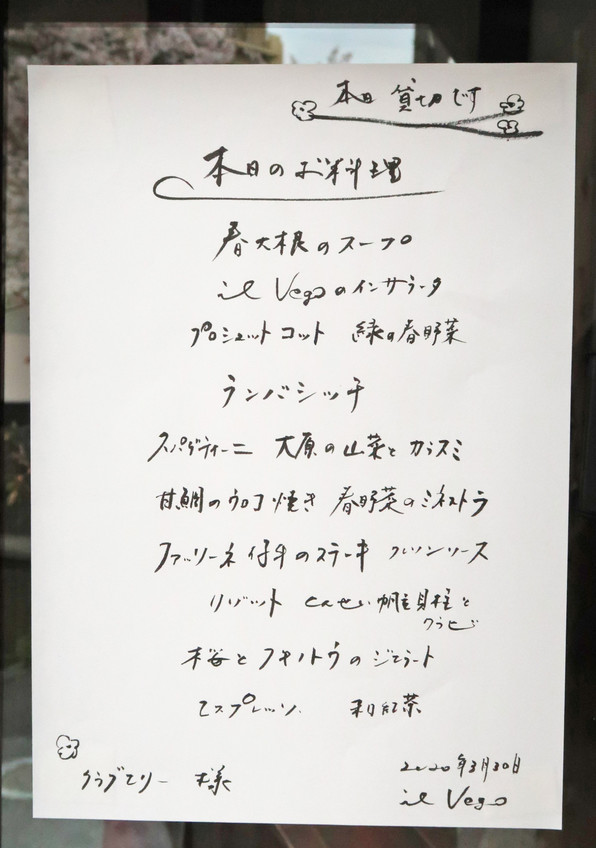 本日 貸切です
本日のお料理
春大根のスープ
il Vegoのインサラータ
プロシュット コット 緑の春野菜
ランバシッチ
スパゲティーニ 大原の山菜と カラスミ
甘鯛のウロコ焼き 春野菜のミネストラ
ファッリーネ 仔牛のステーキ クレソンソース
リゾット とんせい 帆立貝柱と
ワラビ
桜とフキノトウのジェラート
エスプレッソ 和紅茶
クラブエリー 様
2020年3月30日
il Vego